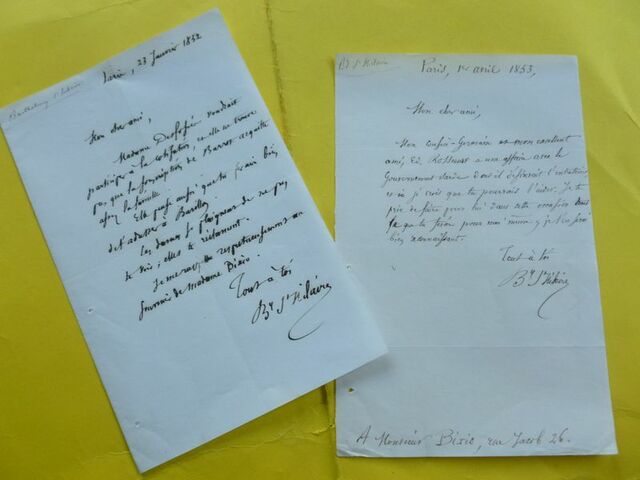 Barthélemy St hilaire
Paris, 23 Janvier 1852
Mon cher ami,
Madame vendrait
participer à la
pas que la souscription de Barrot acquitte
la famille. Elle aussi que tu ferais bien
de t'adresser à
Les dames se plaignent de ne pas
te voir; elles te réclament.
respectueusement au
souvenir de madame Bixio.
Tout à toi
By St Hilaire
By St Hilaire
Paris, 1er avril 1853,
Mon cher ami,
Mon confrère et mon excellent
ami, Ed. a une affaire avec le
Gouvernement dont il désirerait
et je crois que tu pourrais l'aider. Je te
prie de faire pour lui dans cette occasion
ce que tu ferais pour moi même; je t'en serai
bien reconnaissant.
Tout à toi
By St Hilaire
A Monsieur Bixio, rue Jacob 26.